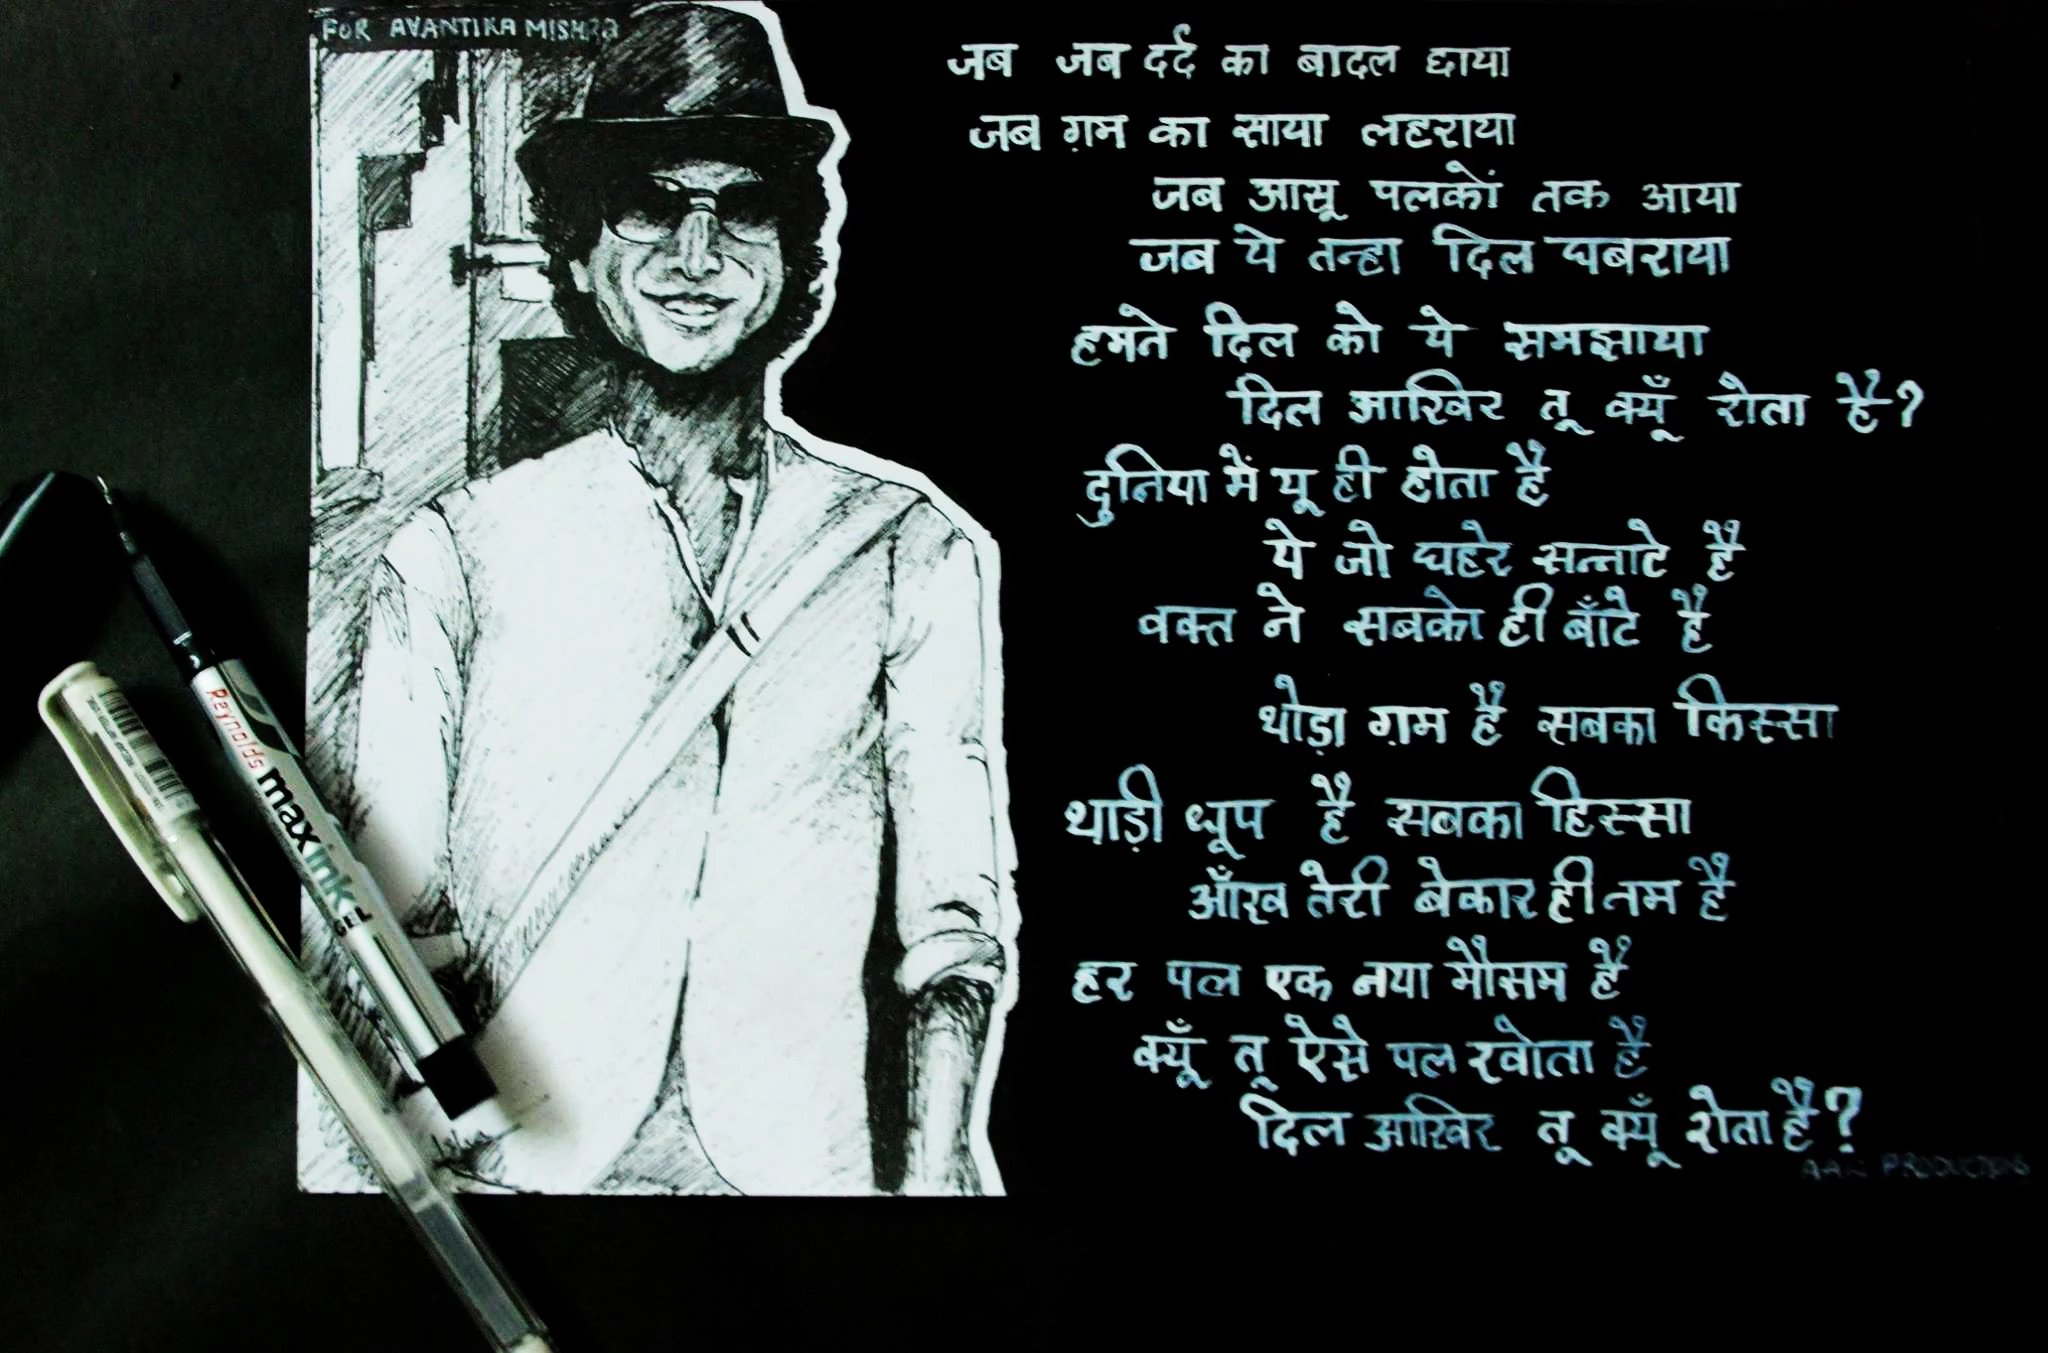 FOR AVANTIKA MISHRA
जब जब दर्द का बादल छाया
जब ग़म का साया लहराया
जब आसू पलकों तक आया
जब ये तन्हा दिल घबराया
हमने दिल को ये समझाया
दिल आखिर तू क्यूँ रोता है?
दुनिया में यू ही होता है
ये जो घहरे सन्नाटे है
वक्त ने सबको ही बाँटे है
थोड़ा ग़म है सबका किस्सा
थाड़ी धूप है सबका हिस्सा
आँख तेरी बेकार ही नम है
हर पल एक नया मौसम है
क्यूँ तू ऐसे पल खोता है
दिल आखिर तू क्यूँ रोता है?
AAN PRODUCTIONS
Reynolds
max ink
GEL